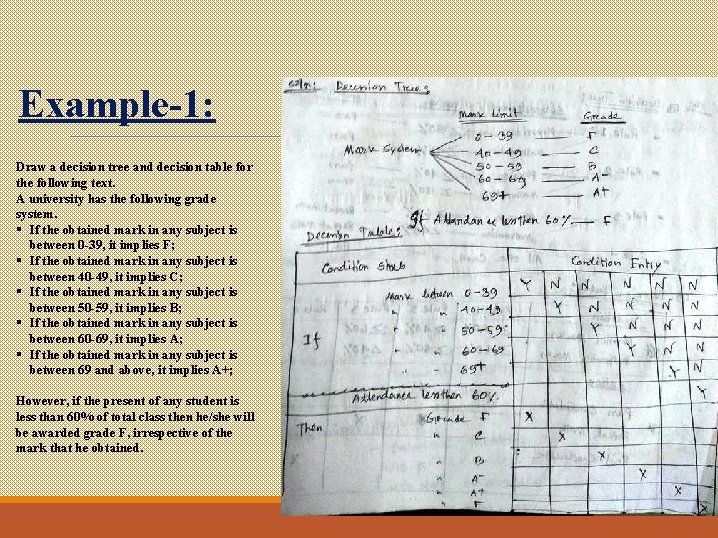 Example-1:
Draw a decision tree and decision table for
the following text.
A university has the following grade
system.
▪ If the obtained mark in any subject is
between 0-39, it implies F;
▪ If the obtained mark in any subject is
between 40-49, it implies C;
▪ If the obtained mark in any subject is
between 50-59, it implies B;
▪ If the obtained mark in any subject is
between 60-69, it implies A;
▪ If the obtained mark in any subject is
between 69 and above, it implies A+;
However, if the present of any student is
less than 60% of total class then he/she will
be awarded grade F, irrespective of the
mark that he obtained.
Decision Tree:
Mark Limit Grade
Mark System
0-39 F
40-49 C
50-59 B
60-69 A-
69+ A+
If Attendance less then 60% F
Decision Table:
Condition Stub Condition Entry
If
Mark between 0-39 Y N N N N N
" " 40-49 Y N N N N
" " 50-59 Y N N N
" " 60-69 Y N N
" " 69+ Y N
Attendance less then 60% Y
Then
Grade F X
" C X
" B X
" A- X
" A+ X
" F X